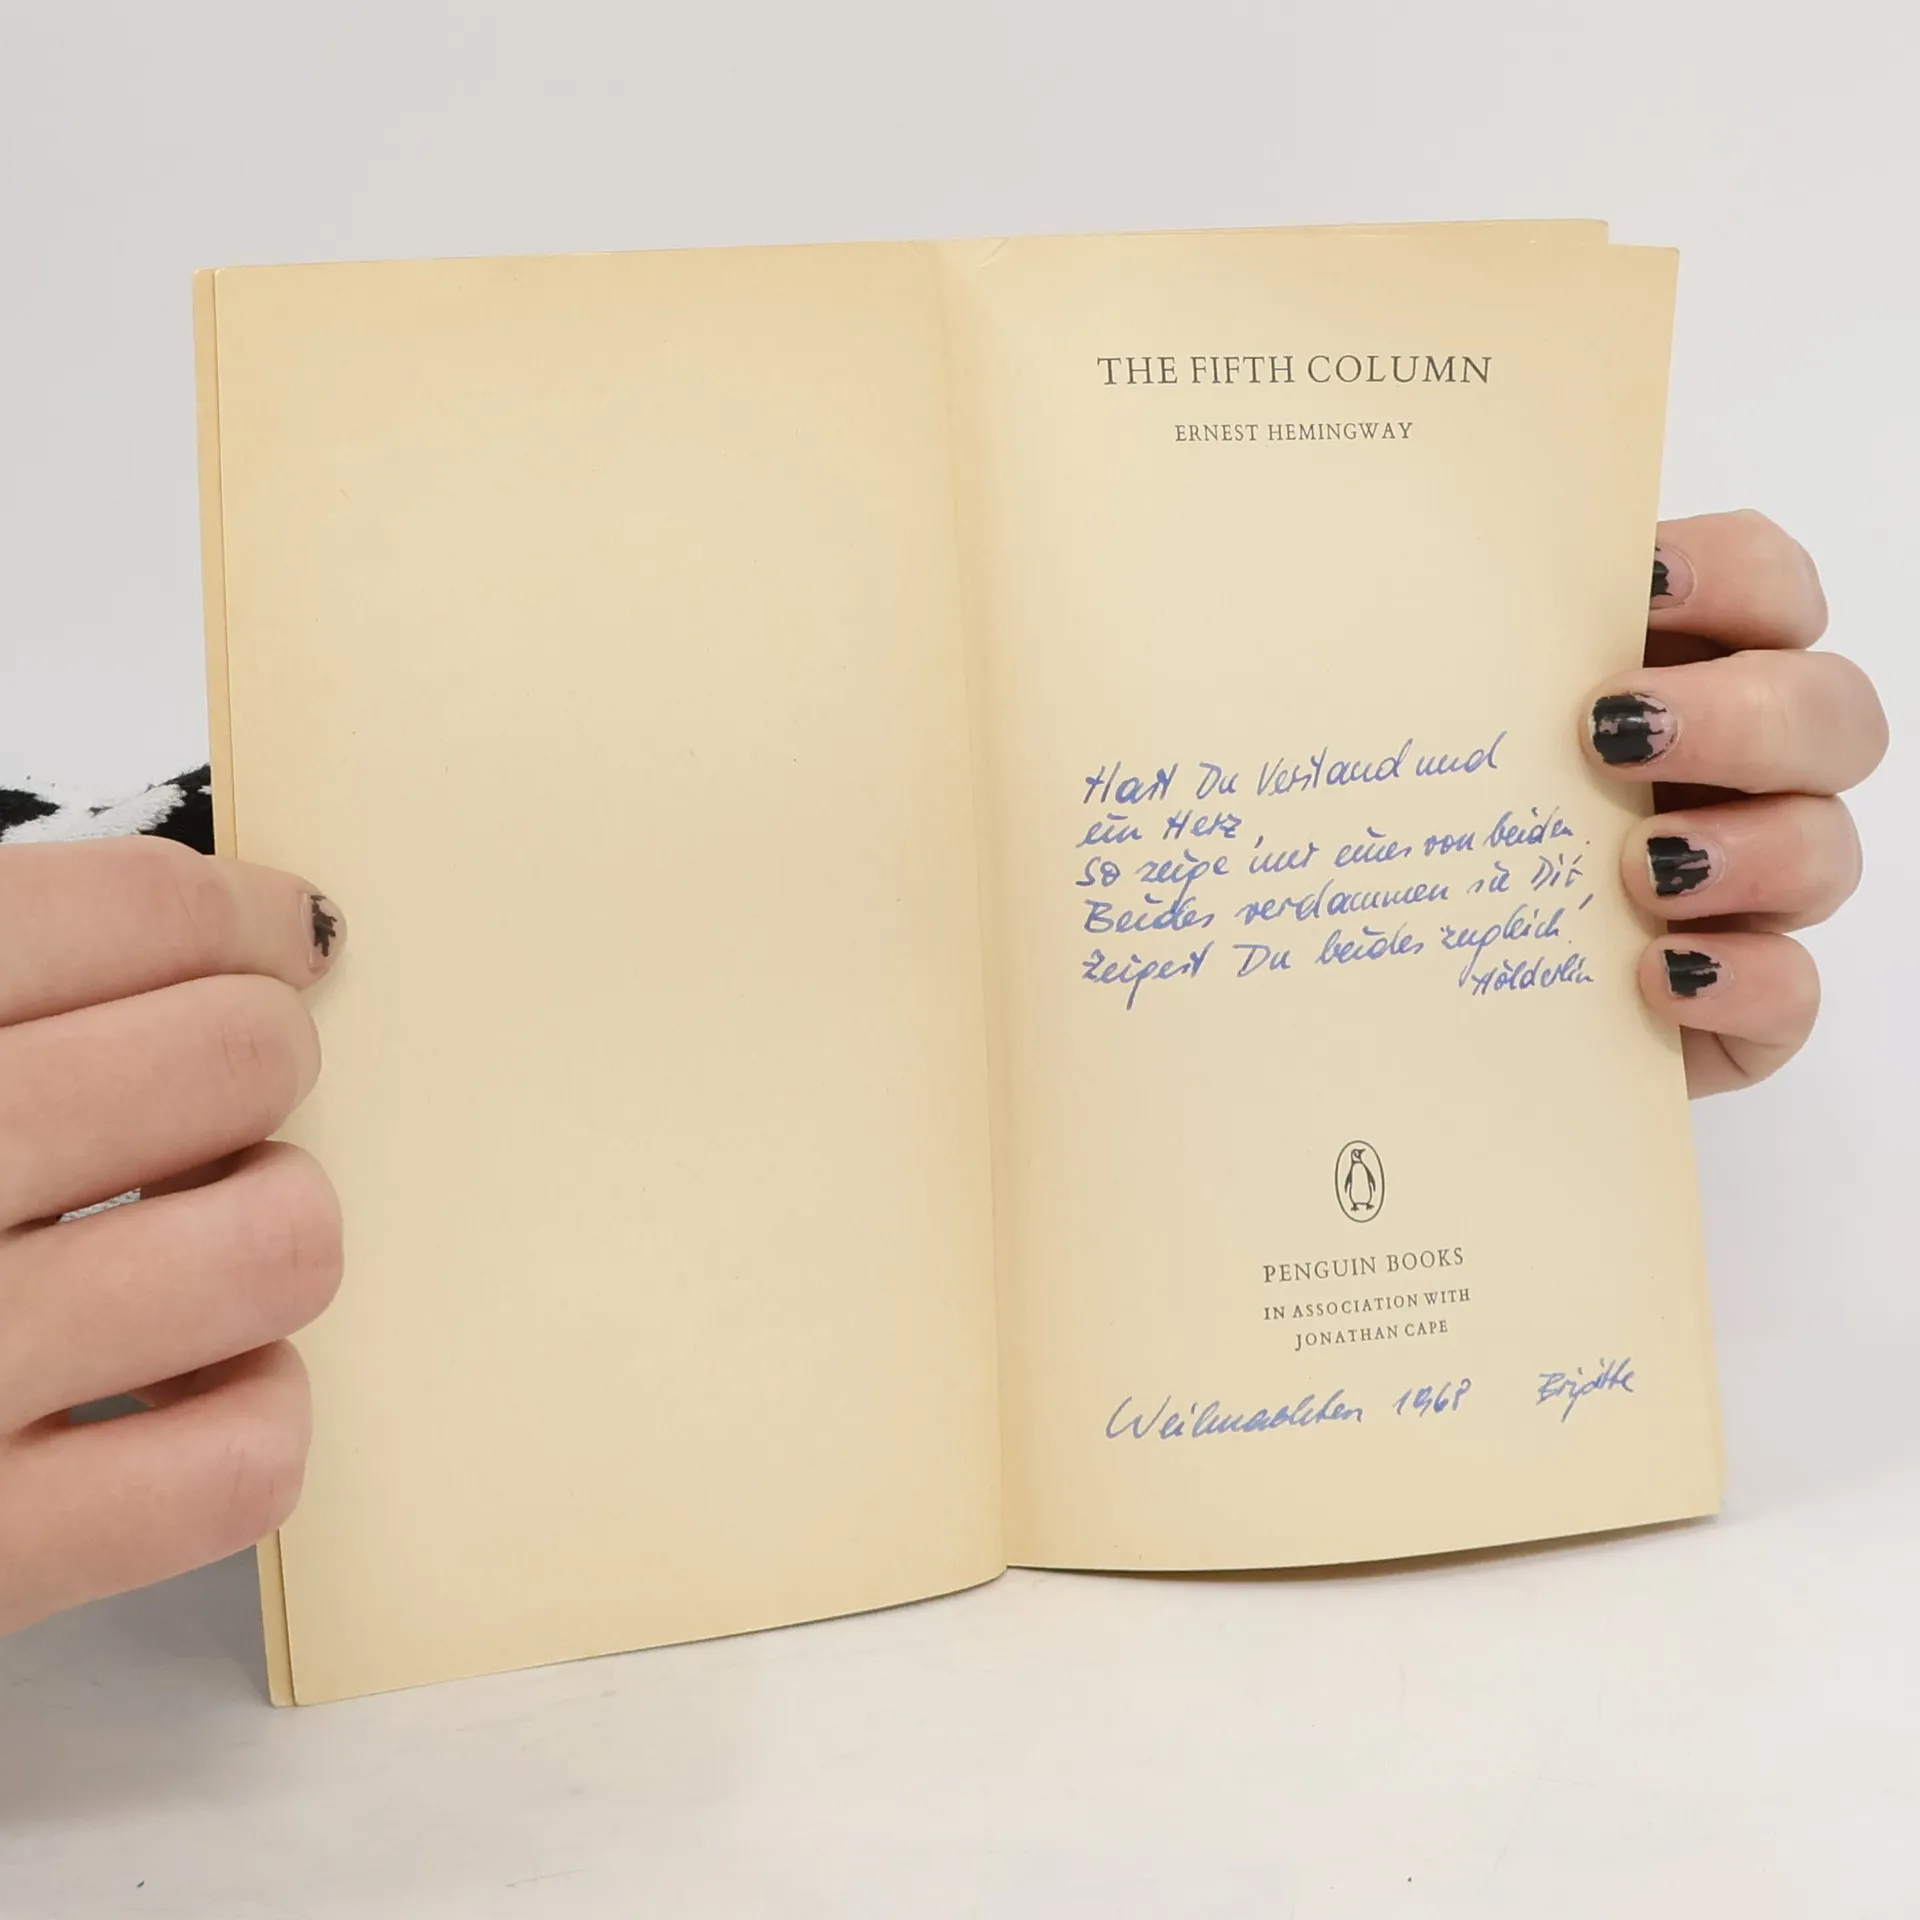 THE FIFTH COLUMN
ERNEST HEMINGWAY
Hast Du Verstand und
ein Herz,
so zeige nur eines von beiden.
Beides verdammen sie Dir,
zeigest Du beides zugleich!
Hölderlin
PENGUIN BOOKS
IN ASSOCIATION WITH
JONATHAN CAPE
Weihnachten 1968 Brigitte